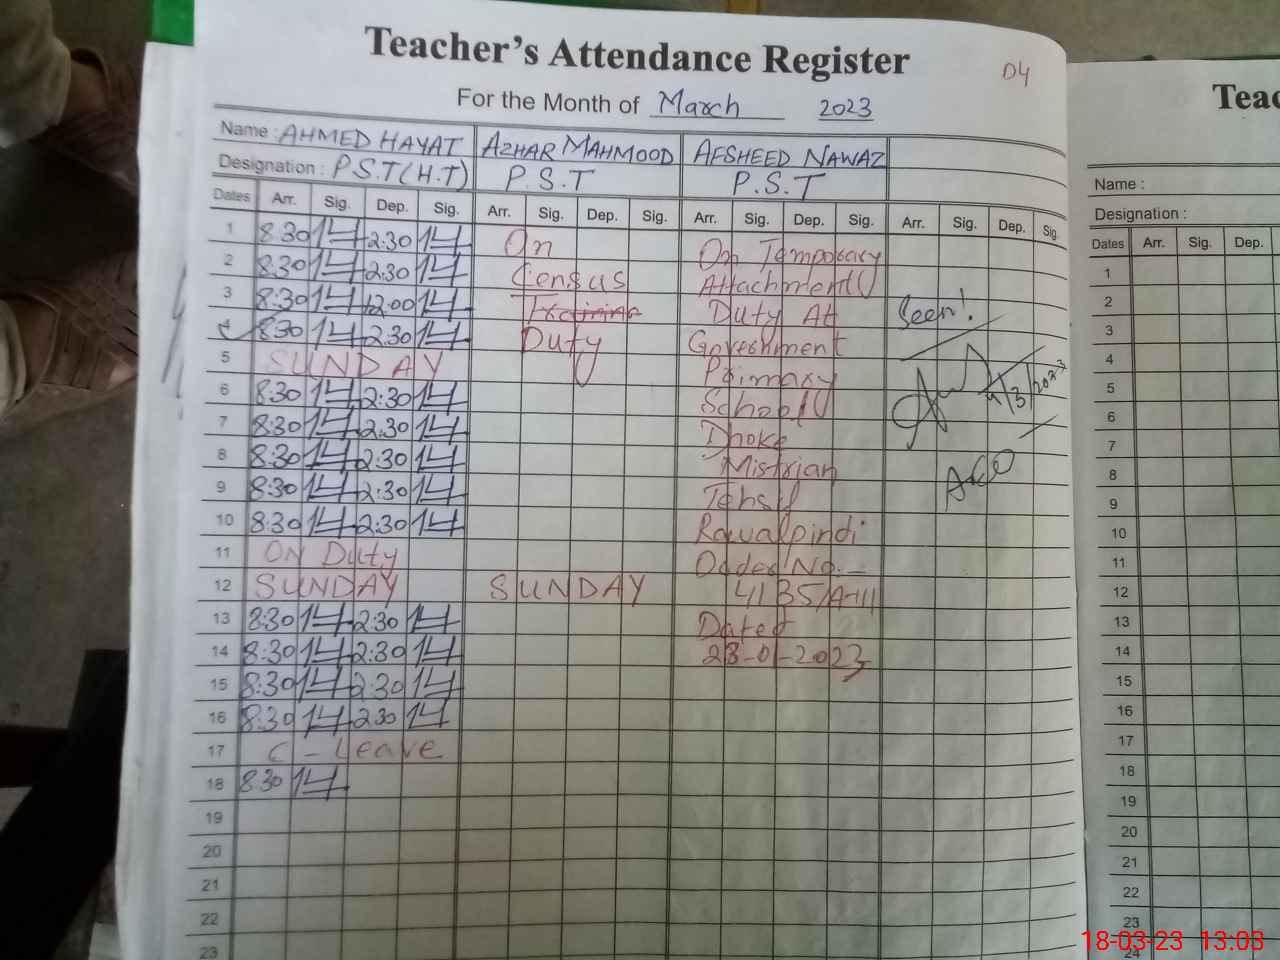 Teacher's Attendance Register
04
For the Month of March 2023
Name : AHMED HAYAT AZHAR MAHMOOD AFSHEED NAWAZ
Designation : P.S.T(H.T) P.S.T P.S.T
Dates Arr. Sig. Dep. Sig. Arr. Sig. Dep. Sig. Arr. Sig. Dep. Sig. Arr. Sig. Dep. Sig.
1 8:30 2:30 On On Temporary
2 8:30 2:30 Census Attachment
3 8:30 12:00 Training Duty At Seen!
4 8:30 2:30 Duty Government
5 SUNDAY Primary 4/3/2023
6 8:30 2:30 School
7 8:30 2:30 Dhoke
8 8:30 2:30 Mistrian AEO
9 8:30 2:30 Tehsil
10 8:30 2:30 Rawalpindi
11 ON Duty Order No.-
12 SUNDAY SUNDAY 4135/A-III
13 8:30 2:30 Dated
14 8:30 2:30 28-01-2023
15 8:30 2:30
16 8:30 2:30
17 C-Leave
18 8:30
19
20
21
22
23
Teac
Name :
Designation :
Dates Arr. Sig. Dep.
1
2
3
4
5
6
7
8
9
10
11
12
13
14
15
16
17
18
19
20
21
22
23
24
18-03-23 13:03